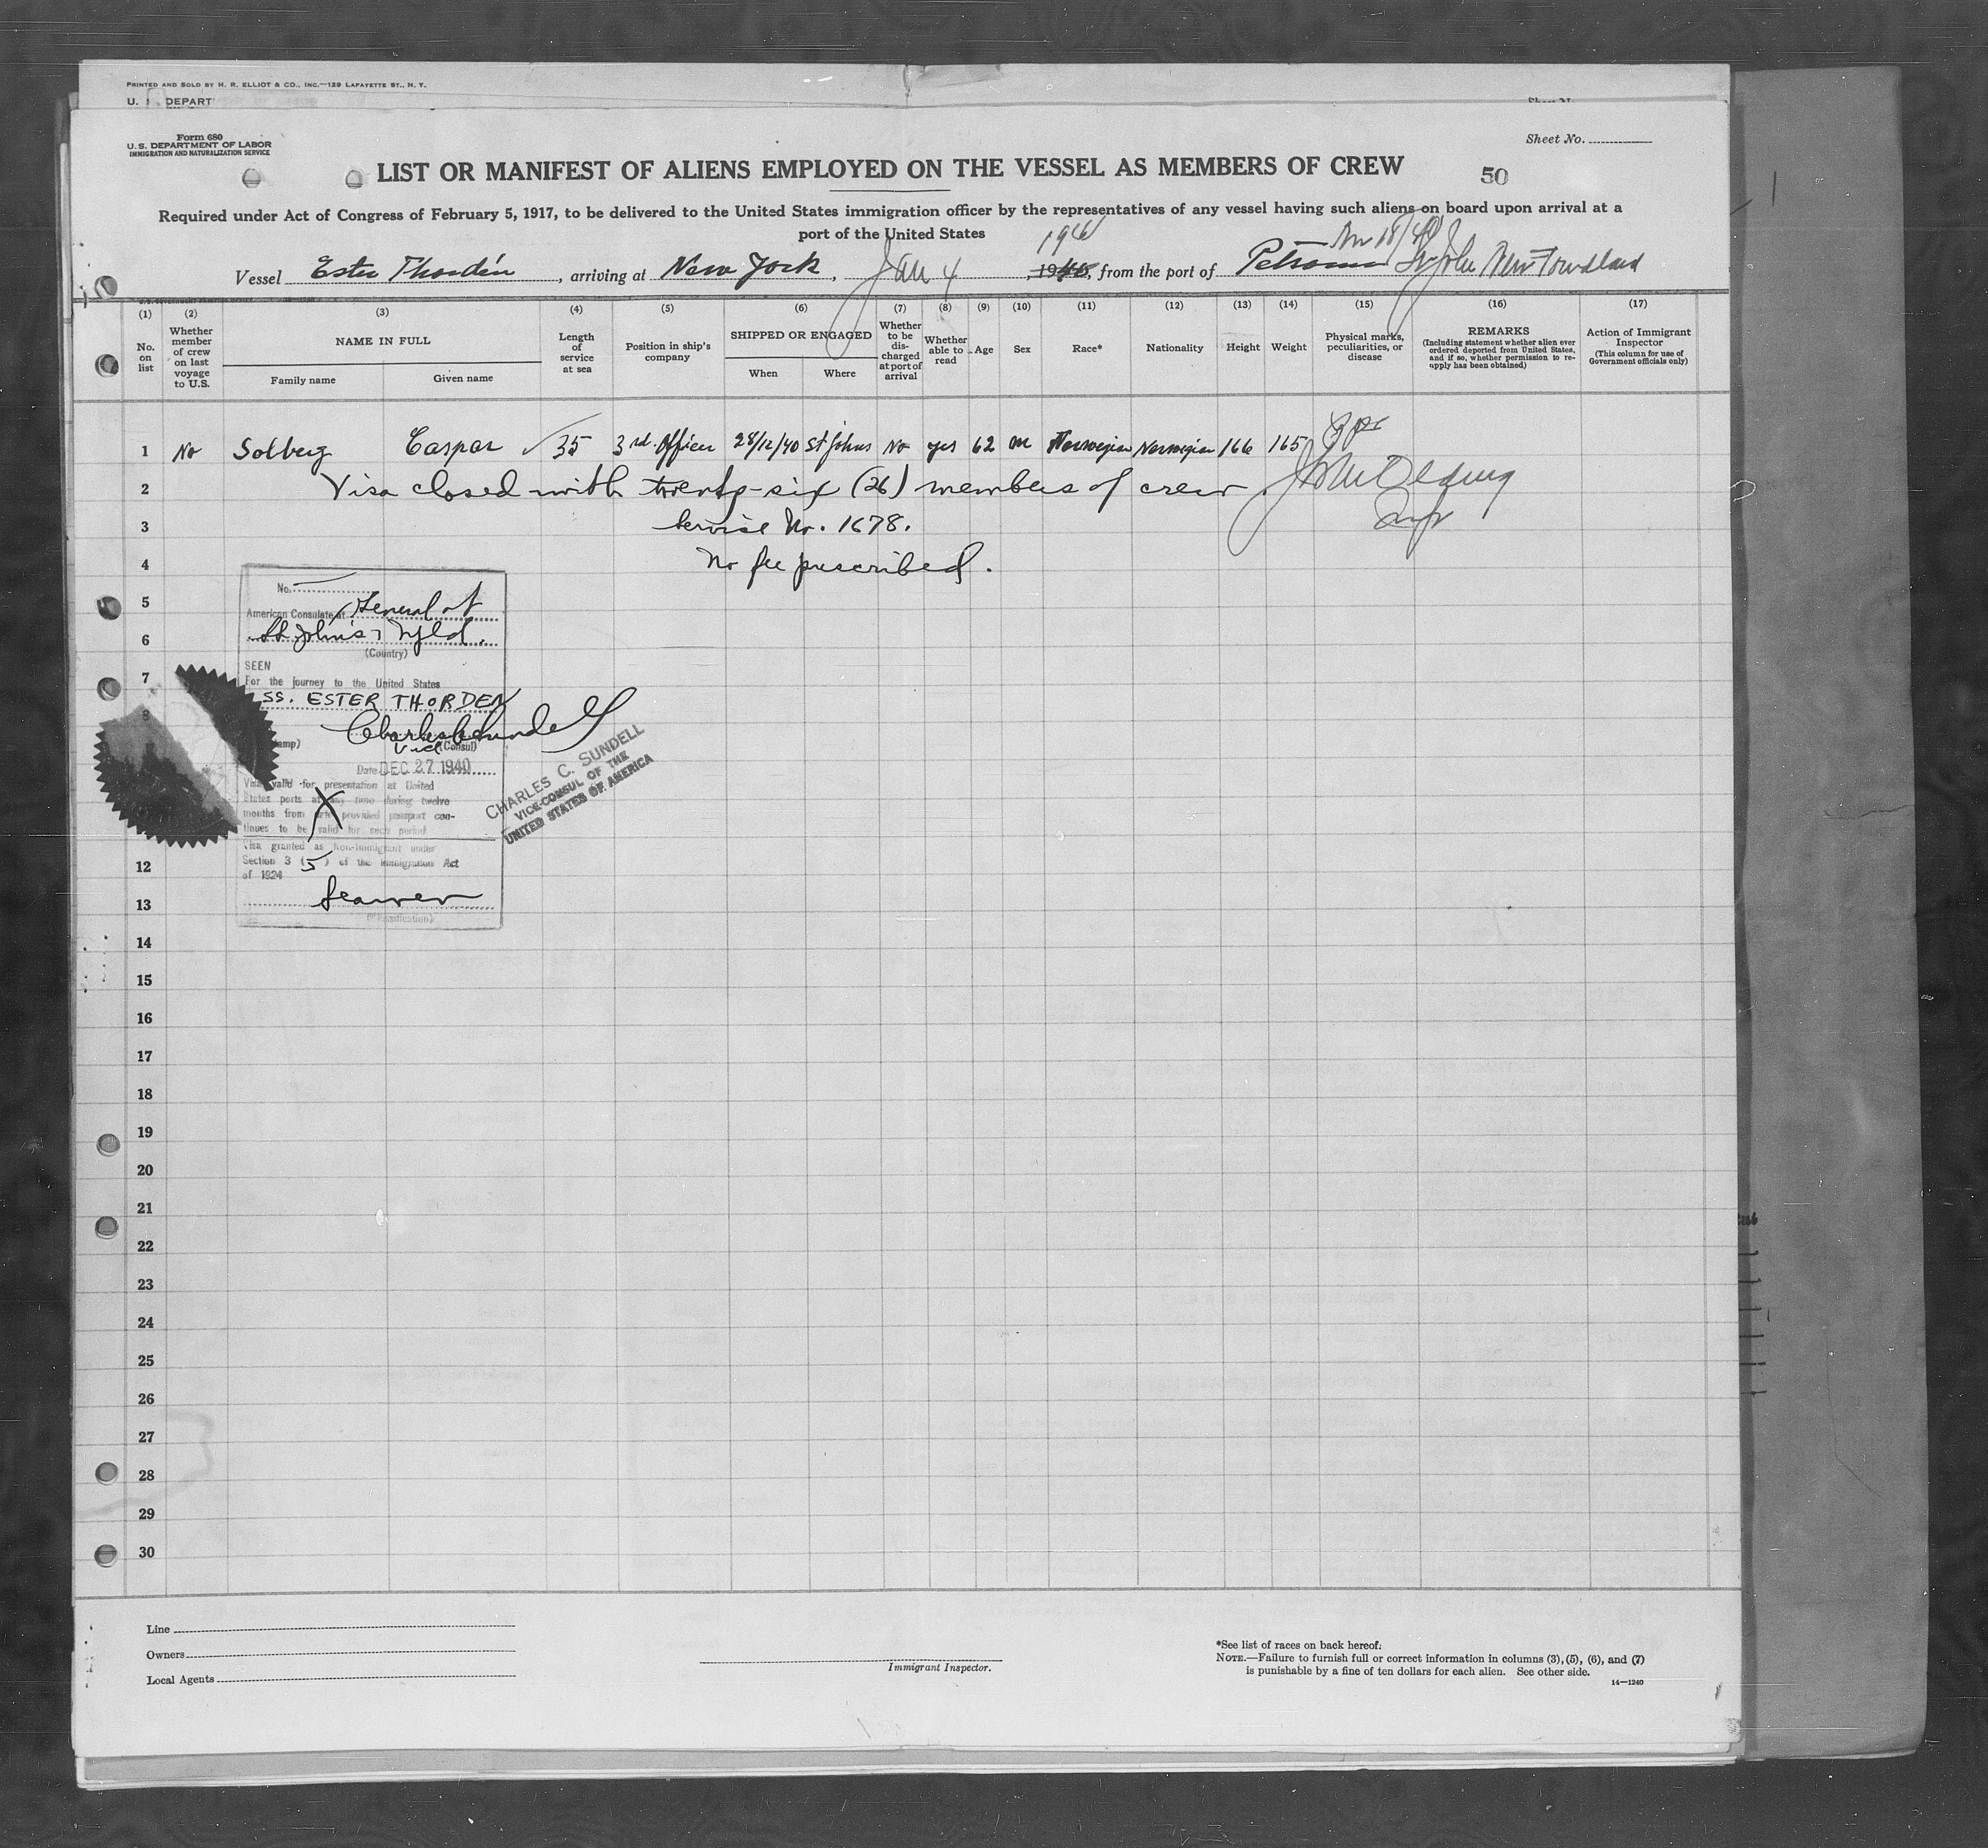 PRINTED AND SOLD BY H. R. ELLIOT & CO., INC.—129 LAFAYETTE ST., N. Y.
U. S. DEPART
Form 680
U.S. DEPARTMENT OF LABOR
IMMIGRATION AND NATURALIZATION SERVICE
Sheet No.
LIST OR MANIFEST OF ALIENS EMPLOYED ON THE VESSEL AS MEMBERS OF CREW
50
Required under Act of Congress of February 5, 1917, to be delivered to the United States immigration officer by the representatives of any vessel having such aliens on board upon arrival at a
port of the United States
1941
Vessel Ester Thordén, arriving at New York, Jan 4, 1940, from the port of Petsamo St John Newfoundland
(1) (2) (3) (4) (5) (6) (7) (8) (9) (10) (11) (12) (13) (14) (15) (16) (17)
No. on list
Whether member of crew on last voyage to U.S.
NAME IN FULL
Family name
Given name
Length of service at sea
Position in ship's company
SHIPPED OR ENGAGED
When
Where
Whether to be discharged at port of arrival
Whether able to read
Age
Sex
Race*
Nationality
Height
Weight
Physical marks, peculiarities, or disease
REMARKS
(Including statement whether alien ever ordered deported from United States, and if so, whether permission to re-apply has been obtained)
Action of Immigrant Inspector
(This column for use of Government officials only)
1 No Solberg Caspar 35 3rd. Officer 28/12/40 St Johns No yes 62 m Norwegian Norwegian 166 165
2 Visa closed with twenty-six (26) members of crew.
3 Service No. 1678.
4 No fee prescribed.
5
6
7
8
12
13
14
15
16
17
18
19
20
21
22
23
24
25
26
27
28
29
30
No.
American Consulate at General at
St. John's, Nfld.
(Country)
SEEN
For the journey to the United States
SS. ESTER THORDEN
Charles C. Sundell
Vice (Consul)
Date DEC 27 1940
Visa valid for presentation at United
States ports at any time during twelve
months from date provided passport con-
tinues to be valid for such period
Visa granted as Non-Immigrant under
Section 3 (5) of the Immigration Act
of 1924
Seamen
(Classification)
CHARLES C. SUNDELL
VICE-CONSUL OF THE
UNITED STATES OF AMERICA
Line
Owners
Local Agents
Immigrant Inspector.
*See list of races on back hereof.
NOTE.—Failure to furnish full or correct information in columns (3), (5), (6), and (7)
is punishable by a fine of ten dollars for each alien. See other side.
14—1240